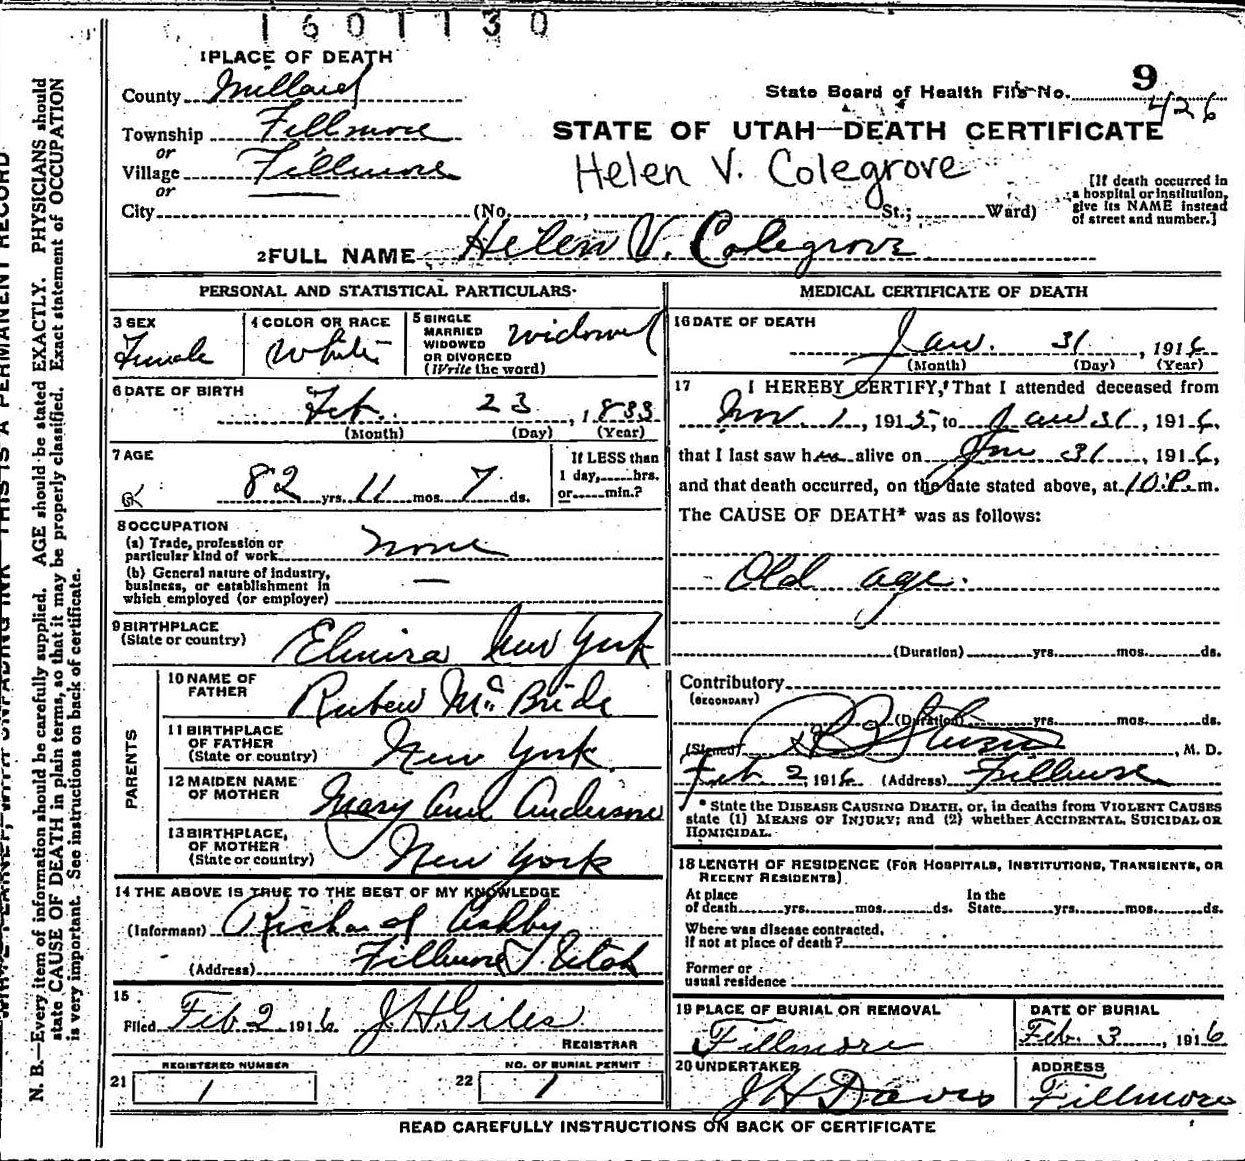 1601130
1 PLACE OF DEATH
County Millard
Township Fillmore
or
Village Fillmore
or
City (No. St.; Ward)
State Board of Health File No. 9
426
STATE OF UTAH—DEATH CERTIFICATE
Helen V. Colegrove
[If death occurred in
a hospital or institution,
give its NAME instead
of street and number.]
2 FULL NAME Helen V. Colegrove
PERSONAL AND STATISTICAL PARTICULARS
3 SEX
Female
4 COLOR OR RACE
White
5 SINGLE
MARRIED
WIDOWED
OR DIVORCED
(Write the word)
Widowed
6 DATE OF BIRTH
Feb. 23, 1833
(Month) (Day) (Year)
7 AGE
82 yrs. 11 mos. 7 ds.
If LESS than
1 day, hrs.
or min.?
8 OCCUPATION
(a) Trade, profession or
particular kind of work None
(b) General nature of industry,
business, or establishment in
which employed (or employer) —
9 BIRTHPLACE
(State or country) Elmira New York
PARENTS
10 NAME OF
FATHER Ruben McBride
11 BIRTHPLACE
OF FATHER
(State or country) New York
12 MAIDEN NAME
OF MOTHER Mary Ann Anderson
13 BIRTHPLACE,
OF MOTHER
(State or country) New York
14 THE ABOVE IS TRUE TO THE BEST OF MY KNOWLEDGE
(Informant) Richard Ashby
(Address) Fillmore Utah
15
Filed Feb 2 1916 J H Giles
REGISTRAR
REGISTERED NUMBER
21 1
NO. OF BURIAL PERMIT
22 1
MEDICAL CERTIFICATE OF DEATH
16 DATE OF DEATH
Jan. 31, 1916
(Month) (Day) (Year)
17 I HEREBY CERTIFY, That I attended deceased from
Nov. 1, 1915, to Jan 31, 1916,
that I last saw her alive on Jan 31, 1916,
and that death occurred, on the date stated above, at 10 P. m.
The CAUSE OF DEATH* was as follows:
Old age.
(Duration) yrs. mos. ds.
Contributory
(SECONDARY)
(Duration) yrs. mos. ds.
(Signed) , M. D.
Feb 2, 1916 (Address) Fillmore
* State the DISEASE CAUSING DEATH, or, in deaths from VIOLENT CAUSES
state (1) MEANS OF INJURY; and (2) whether ACCIDENTAL, SUICIDAL OR
HOMICIDAL.
18 LENGTH OF RESIDENCE (FOR HOSPITALS, INSTITUTIONS, TRANSIENTS, OR
RECENT RESIDENTS)
At place In the
of death yrs. mos. ds. State yrs. mos. ds.
Where was disease contracted,
if not at place of death?
Former or
usual residence
19 PLACE OF BURIAL OR REMOVAL
Fillmore
DATE OF BURIAL
Feb. 3, 1916
20 UNDERTAKER
J H Davis
ADDRESS
Fillmore
READ CAREFULLY INSTRUCTIONS ON BACK OF CERTIFICATE
THIS IS A PERMANENT RECORD
N. B.—Every item of information should be carefully supplied. AGE should be stated EXACTLY. PHYSICIANS should
state CAUSE OF DEATH in plain terms, so that it may be properly classified. Exact statement of OCCUPATION
is very important. See instructions on back of certificate.